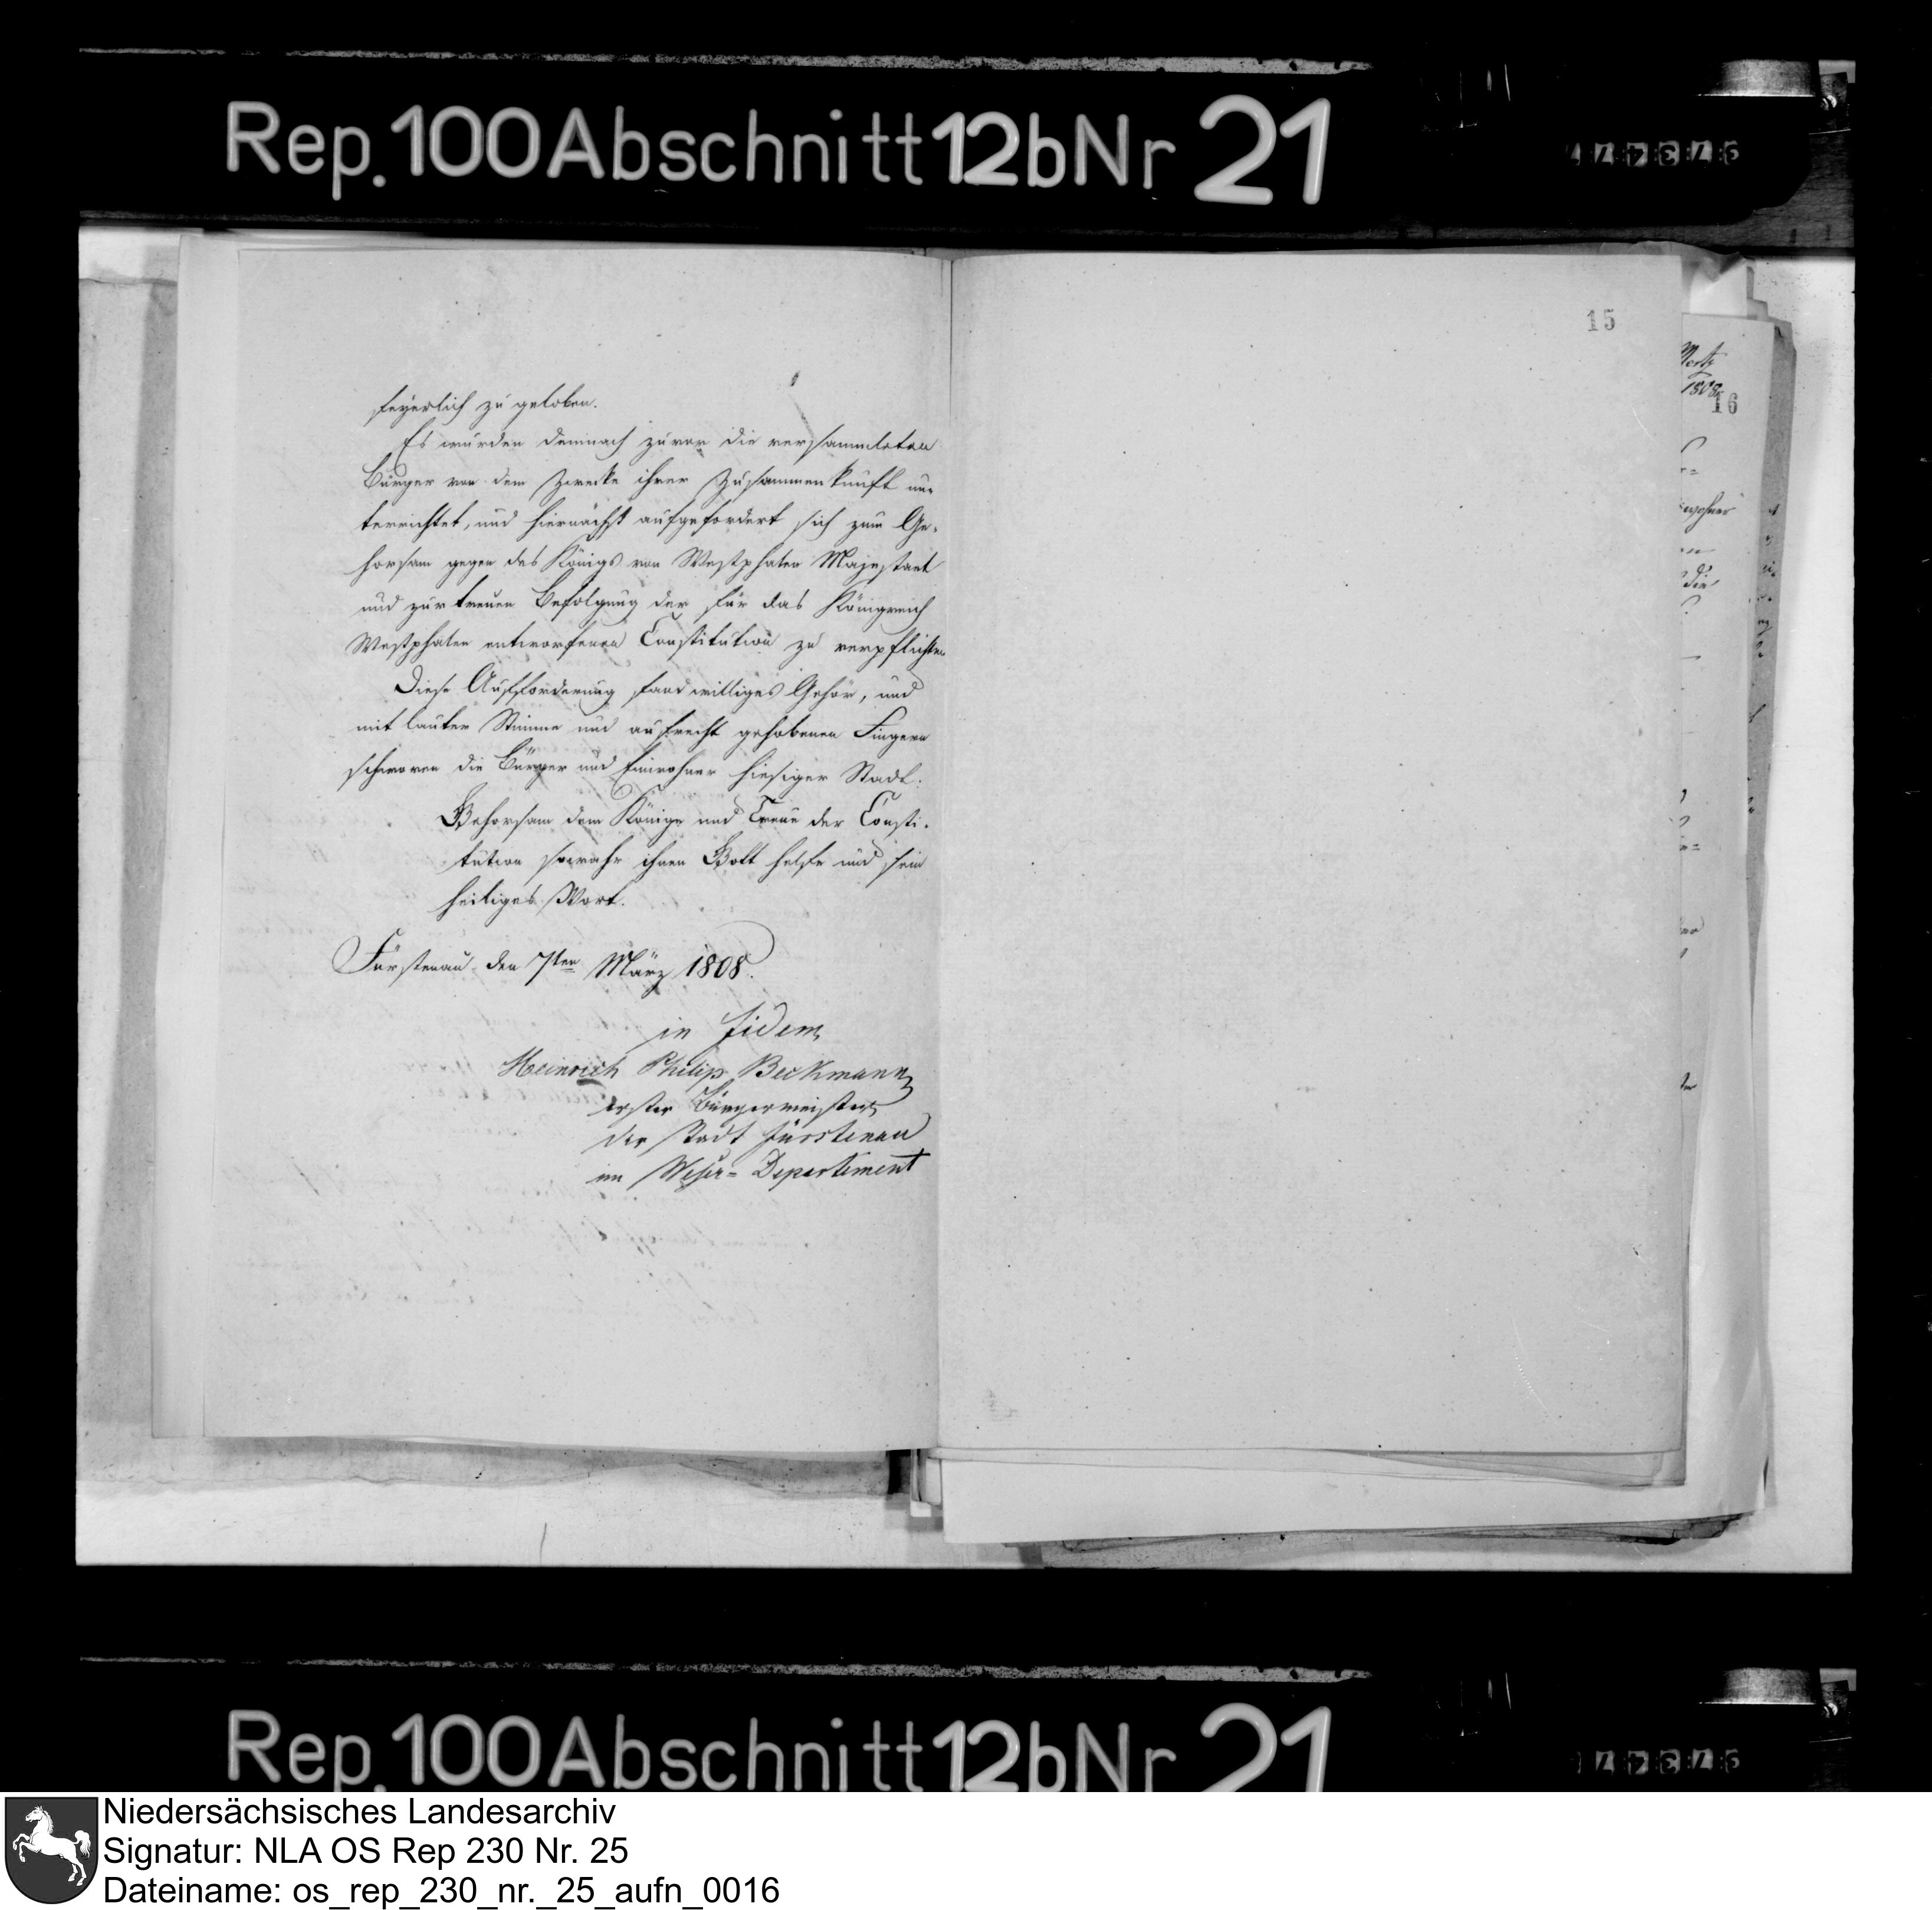 Rep. 100 Abschnitt 12b Nr 21
feyerlich zu geloben.
Es wurden demnach zuvor die versammleten
Bürger von dem Zwecke ihrer Zusammenkunft un-
terrichtet, und hiernächst aufgefordert sich zum Ge-
horsam gegen des Königs von Westphalen Majestaet
und zur treuen Befolgung der für das Königreich
Westphalen entworfenen Constitution zu verpflichten
Diese Aufforderung fand williges Gehör, und
mit lauter Stimme und aufrecht gehobenen Fingern
schworen die Bürger und Einwohner hiesiger Stadt:
Gehorsam dem Könige und Treue der Consti-
tution sowahr ihnen Gott helfe und sein
heiliges Wort.
Fürstenau den 7ten März 1808.
in fidem
Heinrich Philip Beckmann
erster Bürgermeister
der Stadt Fürstenau
im Weser= Departement
15
1808
16
Rep. 100 Abschnitt 12b Nr 21
Niedersächsisches Landesarchiv
Signatur: NLA OS Rep 230 Nr. 25
Dateiname: os_rep_230_nr._25_aufn_0016